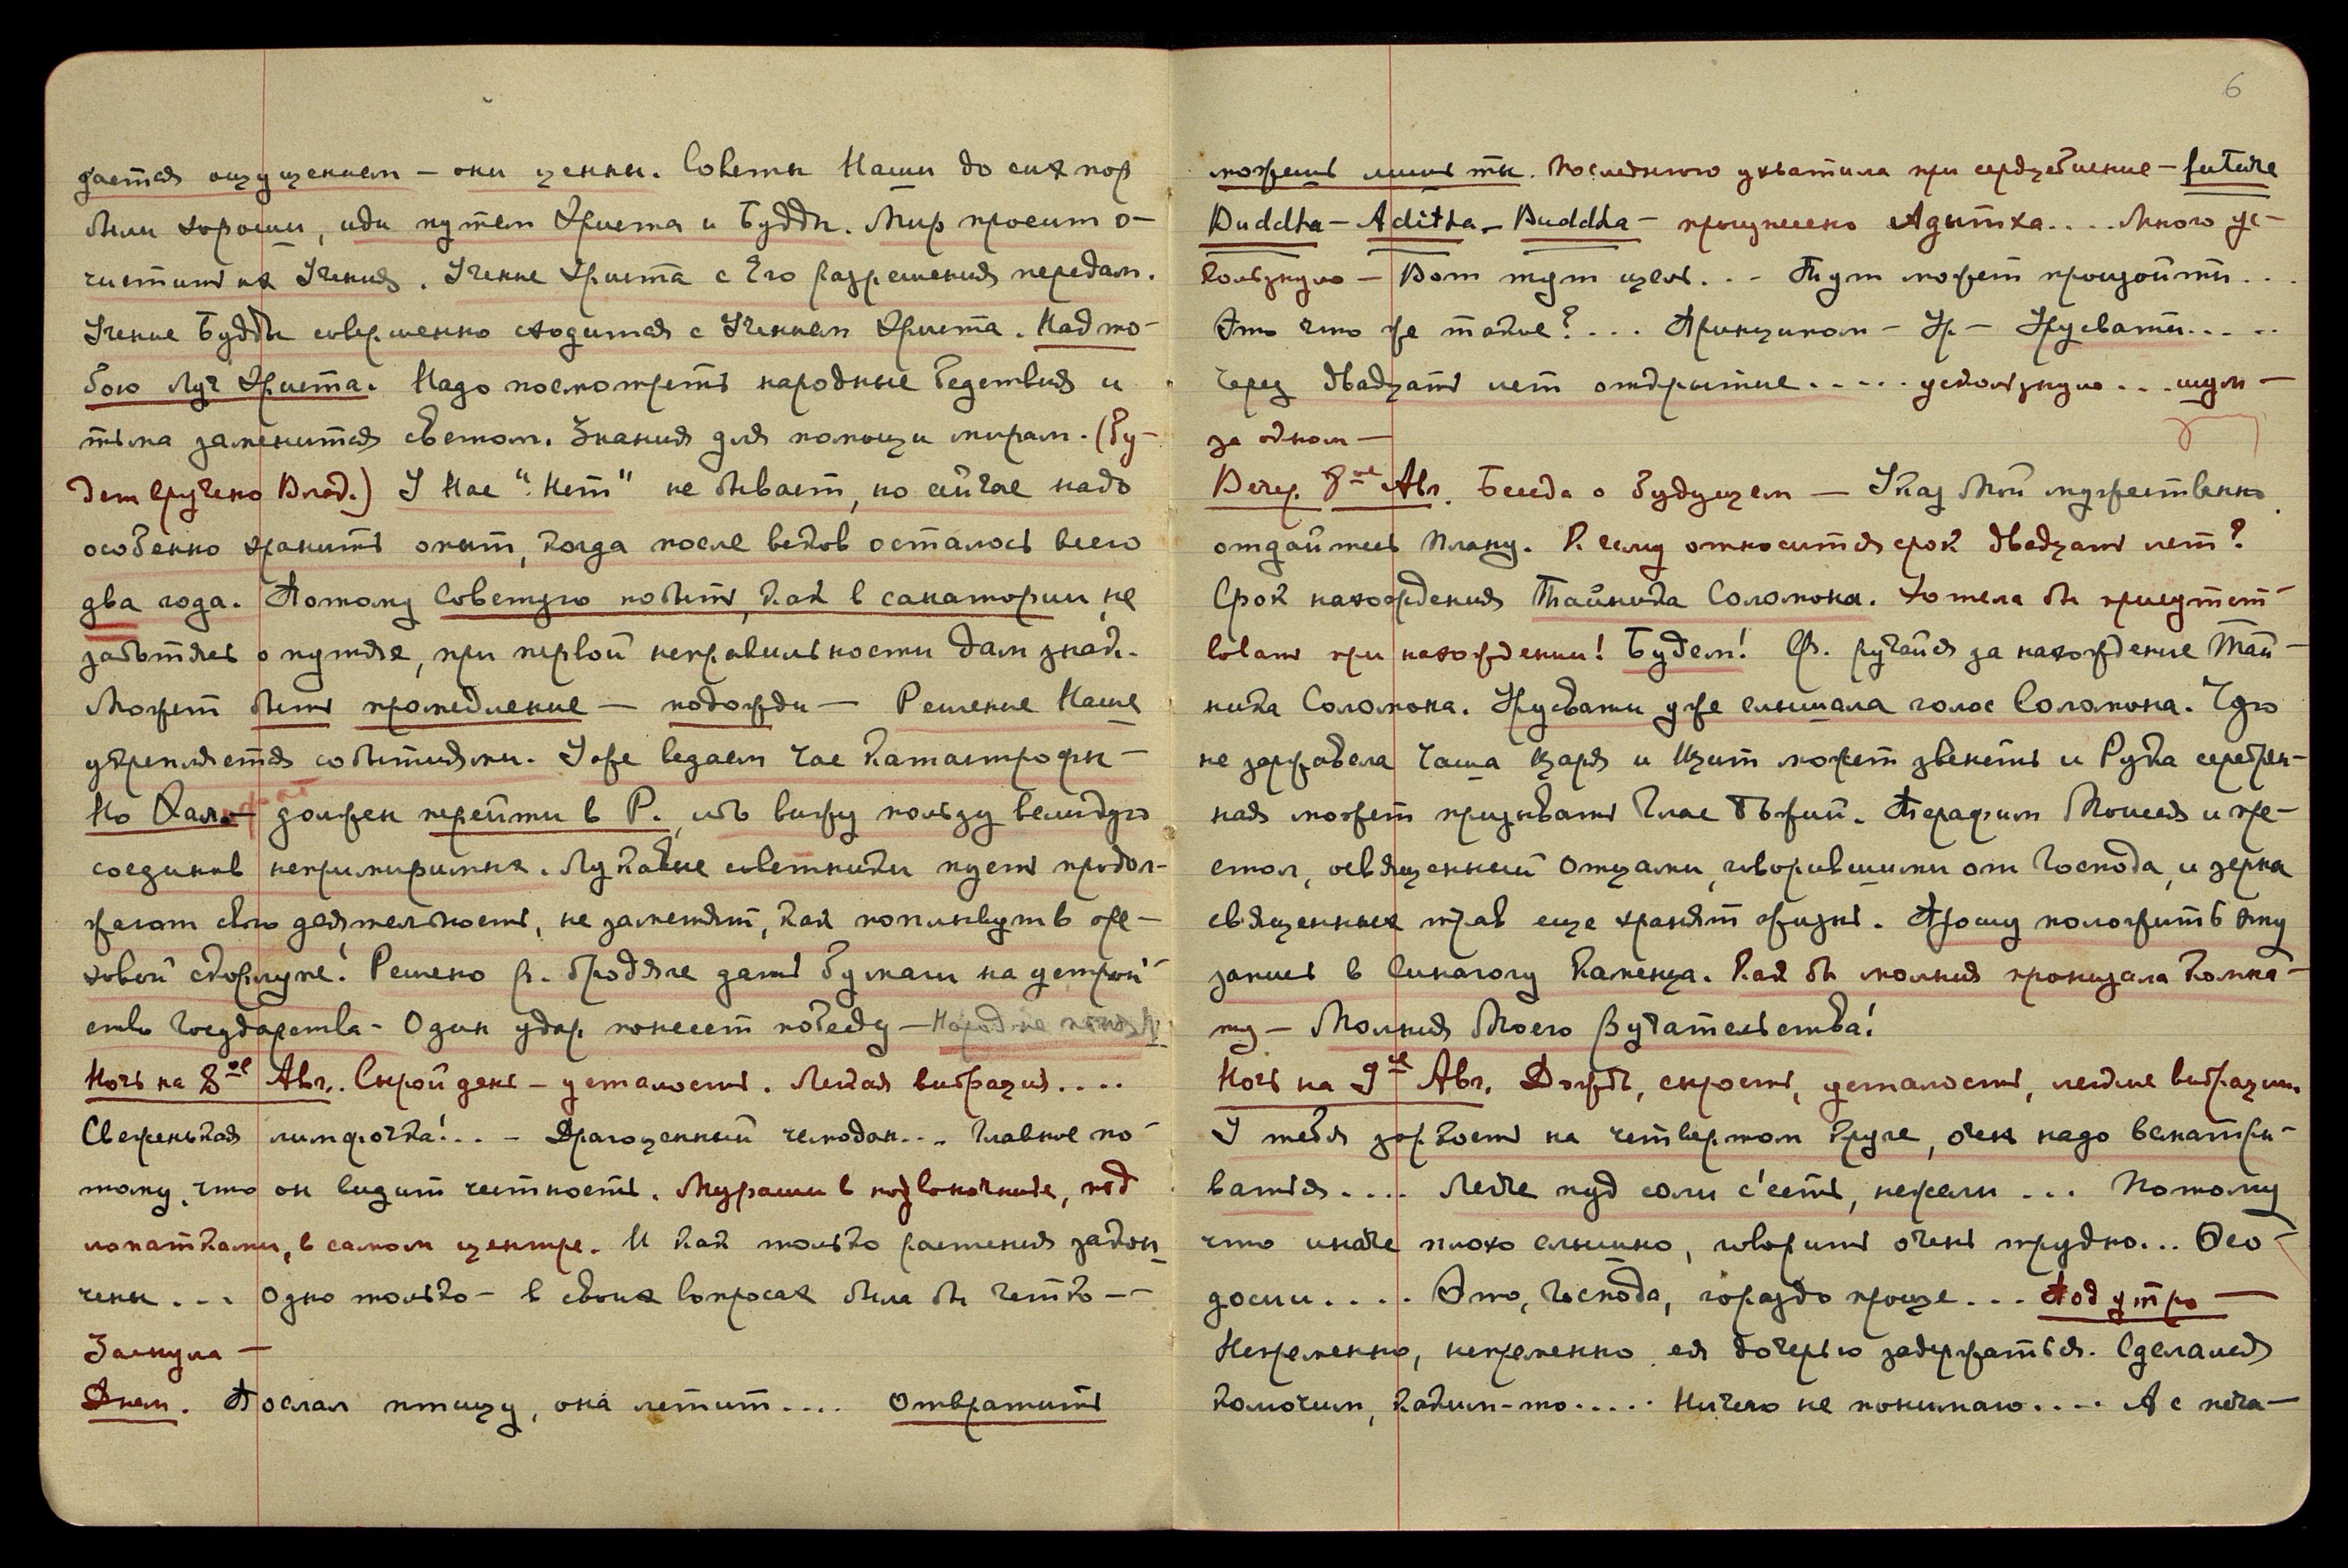 дается ощущением — они ценны. Советы Наши до сих пор
были хороши, иди путем Христа и Будды. Мир просит о-
чистить их Учения. Учение Христа с Его разрешения передам.
Учение Будды совершенно сходится с Учением Христа. Над то-
бою Луч Христа. Надо посмотреть народные бедствия и
тьма заменится светом. Знания для помощи мирам. (Бу-
дет вручено Влад.) У Нас "Нет" не бывает, но сейчас надо
особенно хранить опыт, когда после веков осталось всего
два года. Потому Советую побыть, как в санатории, не
забытясь о путях, при первой неправильности дам знак.
Может быть промедление — подожди — Решение Наше
укрепляется событиями. Уже ведаем час катастрофы —
Но должен перейти в Р., ибо вижу пользу великую
соединив непримиримых. Лукавые советники пусть продол-
жают свою деятельность, не заметят, как поплывут в оре-
ховой скорлупе! Решено ф. бродяге дать бумаги на устрой-
ство Государства — Один удар понесет победу — Народ не
Ночь на 8-ое Авг. Сырой день — усталость. Легкая вибрация....
Свеженькая лимфочка!... — Драгоценный чемодан... Главное по-
тому, что он видит честность. Мураши в позвоночнике, под
лопатками, в самом центре. И как только растения закон-
чены... Одно только — в своих вопросах была бы четко — —
Заснула —
Днем. Послал птицу, она летит.... Отвратить
6
можешь лишь ты. Последнюю ухватила при сердцебиение — future
Buddha — Aditha — Buddha — прыгуше́но Адитха.... Много ус-
кользнуло — Вот тут щель... — Тут может произойти...
Это что же такое?... Принципом — Ур — Урусвати.....
Через двадцать лет открытие..... ускользнуло... шум —
за окном —
Вечер 8-ое Авг. Беседа о будущем — Указ Мой мужественно
отдайтесь Плану. К чему относится срок двадцать лет?
Срок нахождения Тайника Соломона. Хотела бы присутст-
вовать при нахождении! Будем! Ф. ручайся за нахождение Тай-
ника Соломона. Урусвати уже слышала голос Соломона. Чую
не заржавела Чаша Царя и Щит может звенеть и Рука серебрян-
ная может призывать Глас Божий. Терафим Моисея и пре-
стол, освященный Отцами, говорившими от Господа, и зерна
священных трав еще хранят жизнь. Прошу положить эту
запись в Синагогу Каменца. Как бы молния пронизала комна-
ту — Молния Моего Ручательства!
Ночь на 9-ое Авг. Дождь, сырость, усталость, легкие вибрации
У тебя зоркость на четвертом круге, очень надо всматри-
ваться.... Легче пуд соли с'есть, нежели... Потому
что иначе плохо слышно, говорить очень трудно... Фео-
досии.... Это, Господа, гораздо проще... Под утро —
Непременно, непременно ея дочерью задержаться. Сделался
комочим, каким-то..... Ничего не понимаю.... А с неча-